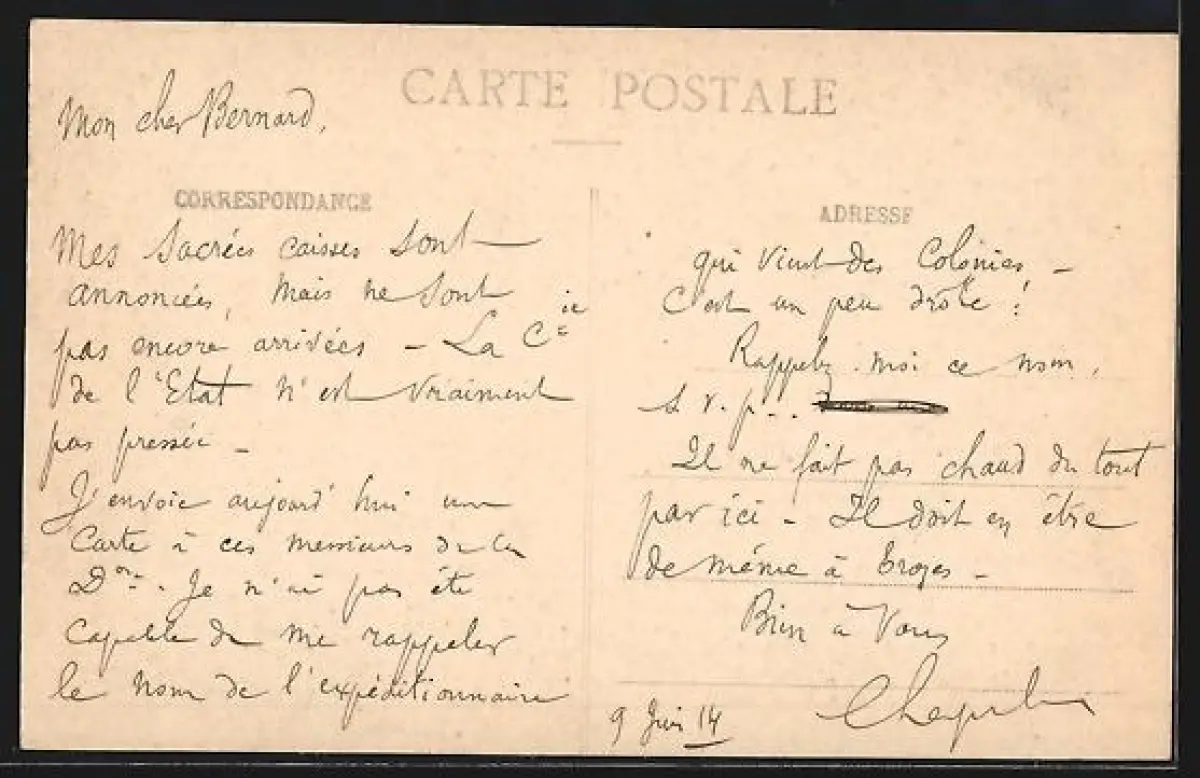 CARTE POSTALE
Mon cher Bernard,
CORRESPONDANCE
Mes Sacrées caisses sont
annoncées, mais ne sont
pas encore arrivées - La Cie
de l'Etat n'est vraiment
pas pressée -
J'envoie aujourd'hui une
Carte à ces messieurs de la
Don. Je n'ai pas été
capable de me rappeler
le nom de l'expéditionnaire
ADRESSE
qui vient des Colonies, -
C'est un peu drôle !
Rappelez-moi ce nom,
s.v.p..
Il ne fait pas chaud du tout
par ici - Il doit en être
de même à Troyes -
Bien à Vous
9 Juin 14